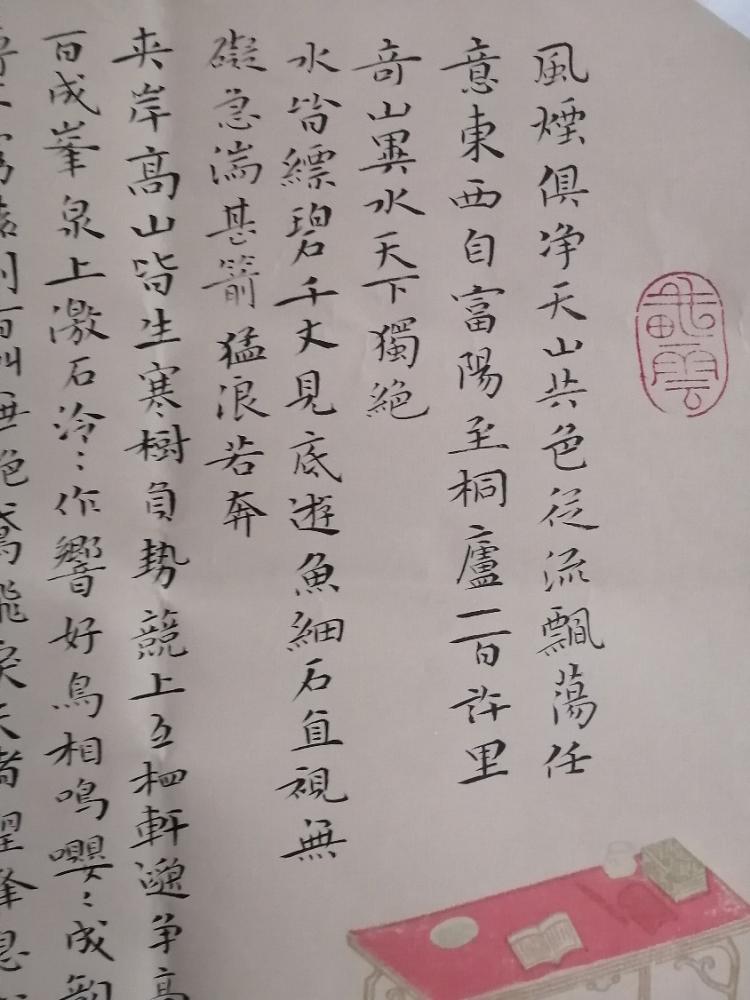 風煙俱净天山共色従流飄蕩任
意東西自富陽至桐廬一百許里
奇山異水天下獨絕
水皆縹碧千丈見底遊魚細石直視無
礙急湍甚箭猛浪若奔
夾岸高山皆生寒樹負勢競上互相軒邈争高
百成峯泉上激石泠〻作響好鳥相鳴嚶〻成韻
百叫無絕鳶飛戾天者望峯息